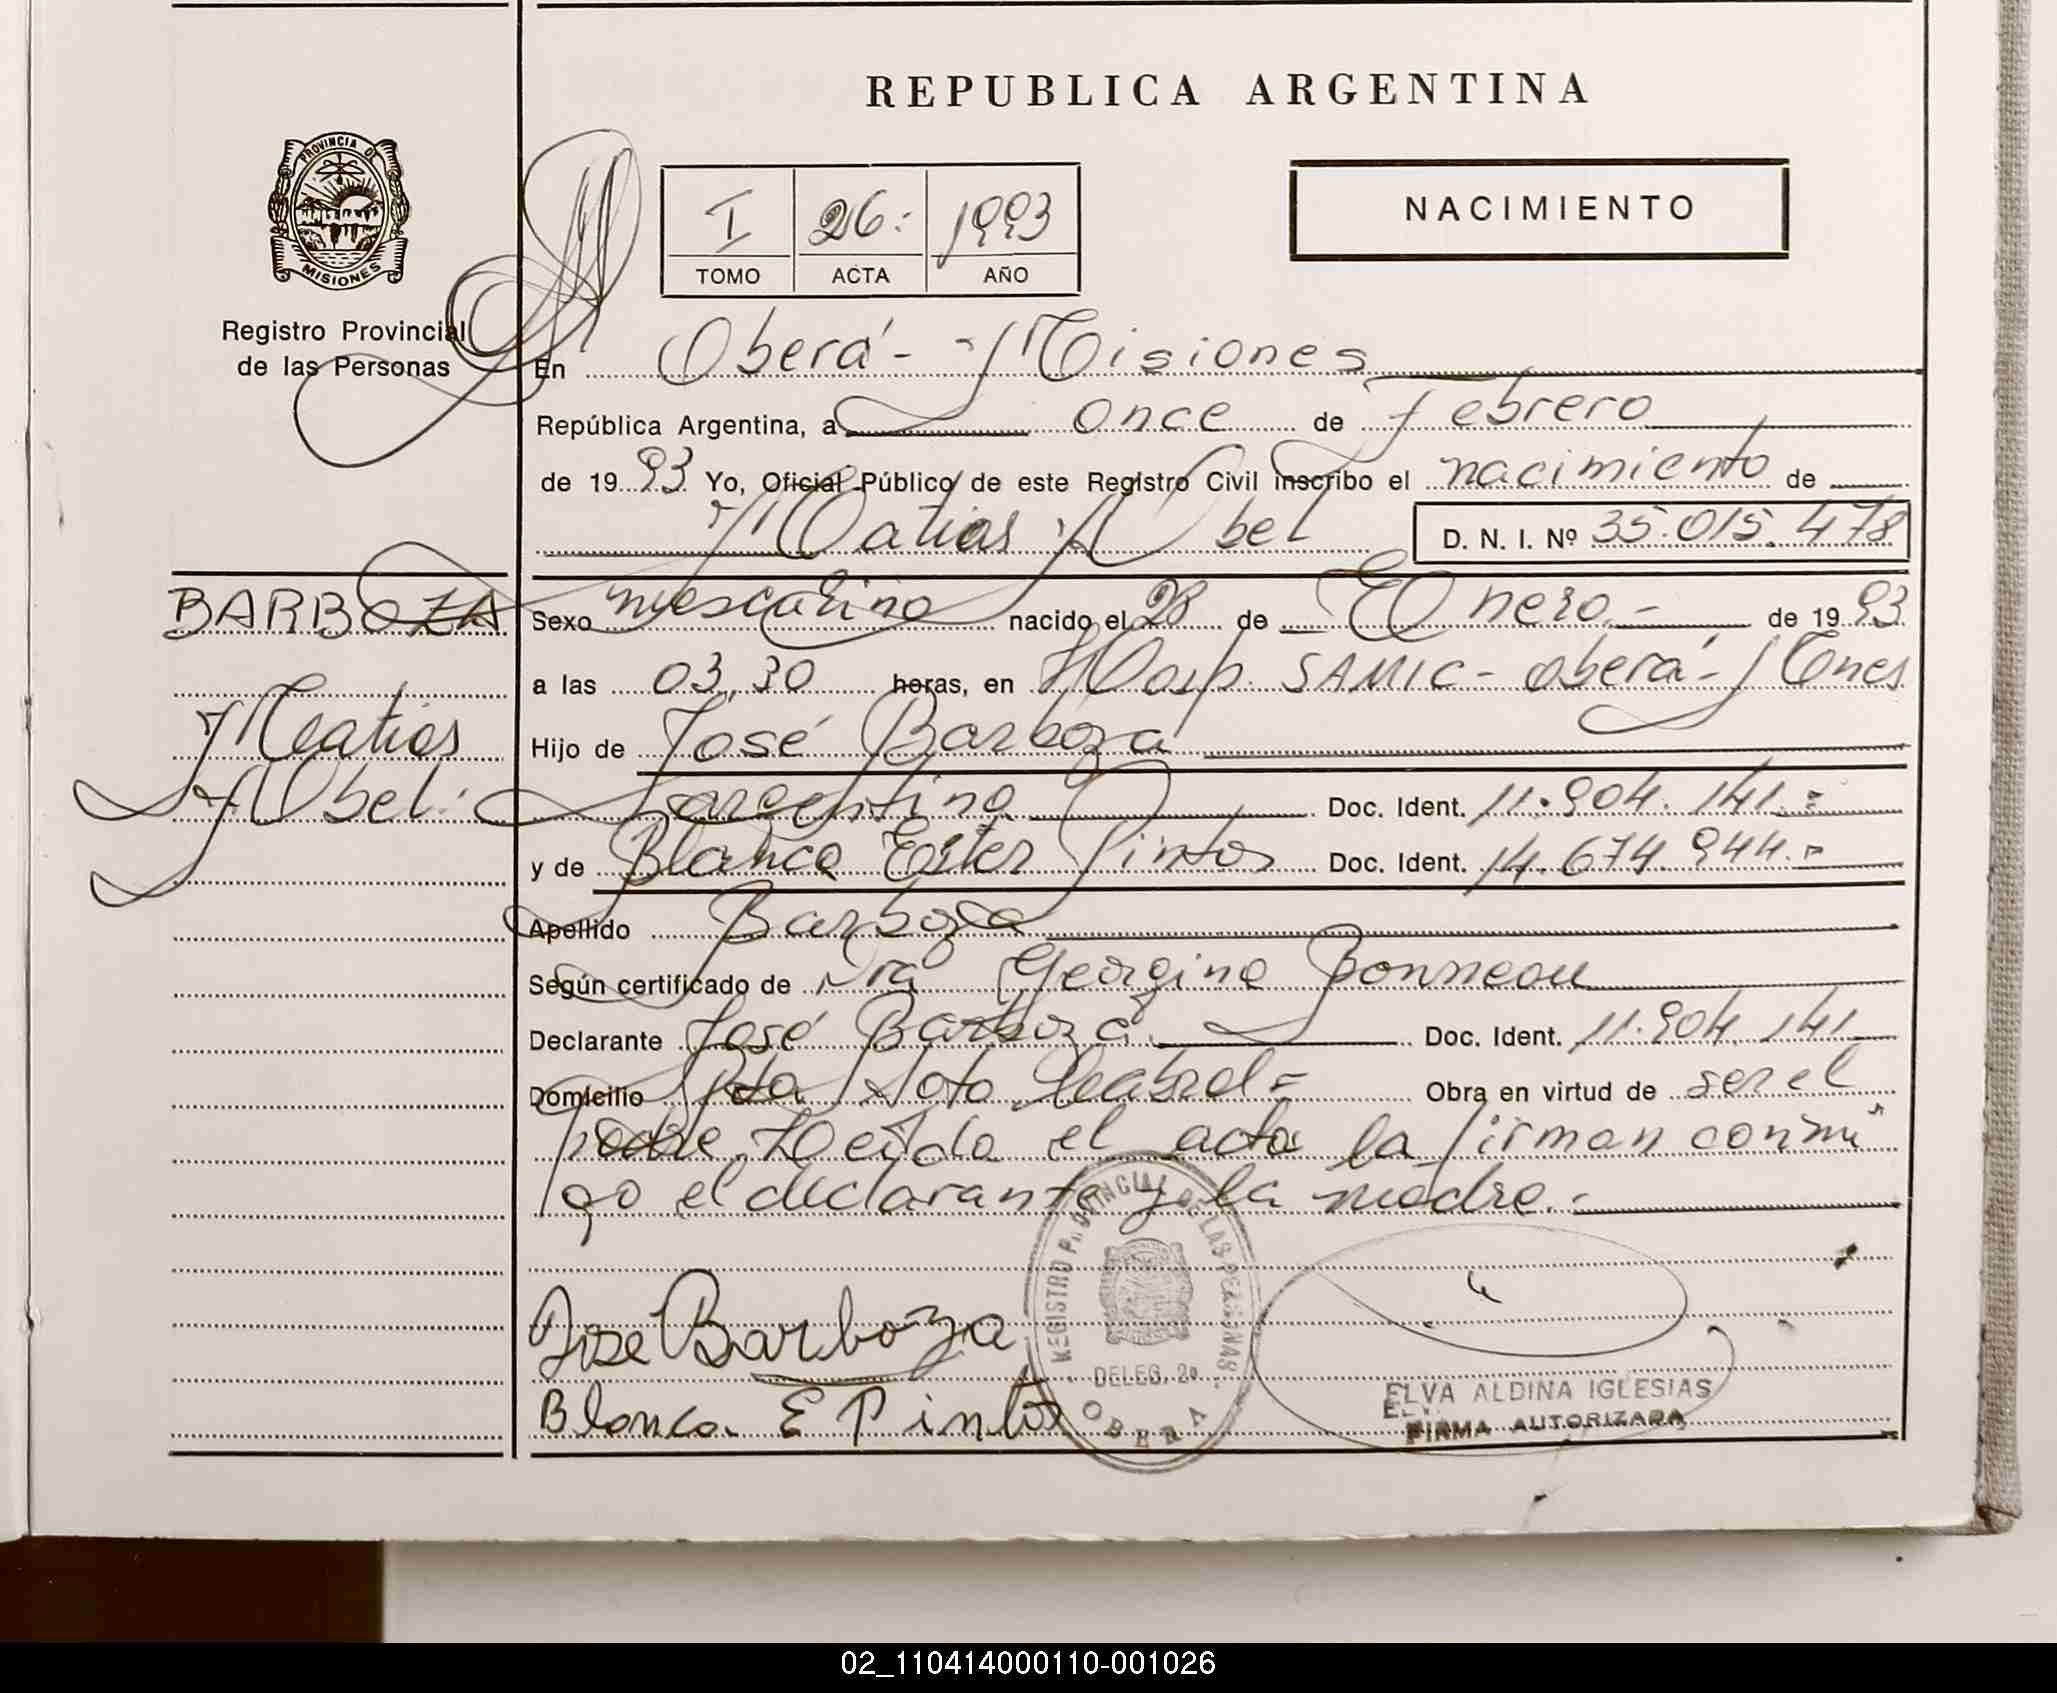 REPUBLICA ARGENTINA
PROVINCIA DE
MISIONES
Registro Provincial
de las Personas
I 26: 1993
TOMO ACTA AÑO
NACIMIENTO
En Oberá - Misiones
República Argentina, a once de Febrero
de 19 93 Yo, Oficial Público de este Registro Civil inscribo el nacimiento de
Matias Abel D. N. I. Nº 35.015.478
BARBOZA
Matias
Abel.
Sexo masculino nacido el 28 de Enero.- de 19 93
a las 03,30 horas, en Hosp. SAMIC - Oberá - Mnes
Hijo de José Barboza
argentino Doc. Ident. 11.904.141.=
y de Blanca Ester Pintos Doc. Ident. 14.674.944.=
Apellido Barboza
Según certificado de Dra Georgina Bonneau
Declarante José Barboza Doc. Ident. 11.904.141
Domicilio Pto Obra en virtud de ser el
padre. Leída el acta la firman conmi
go el declarante y la madre.-
Jose Barboza
Blanca E Pintos
REGISTRO PROVINCIAL DE LAS PERSONAS
DELEG. 2a
OBERA
ELVA ALDINA IGLESIAS
FIRMA AUTORIZADA
02_110414000110-001026